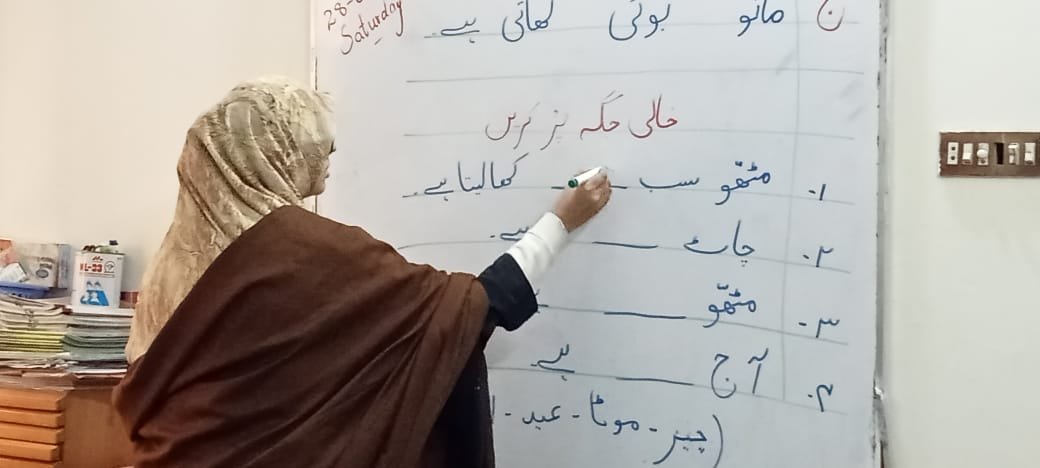 28-
Saturday
ج مانو بوٹی کھاتی ہے۔
خالی جگہ پر کریں
۱۔ مٹھّو سب ____ کھا لیتا ہے۔
۲۔ چاٹ ____ ہے۔
۳۔ مٹھّو ____
۴۔ آج ____ ہے
(چیز - موٹا - عید -